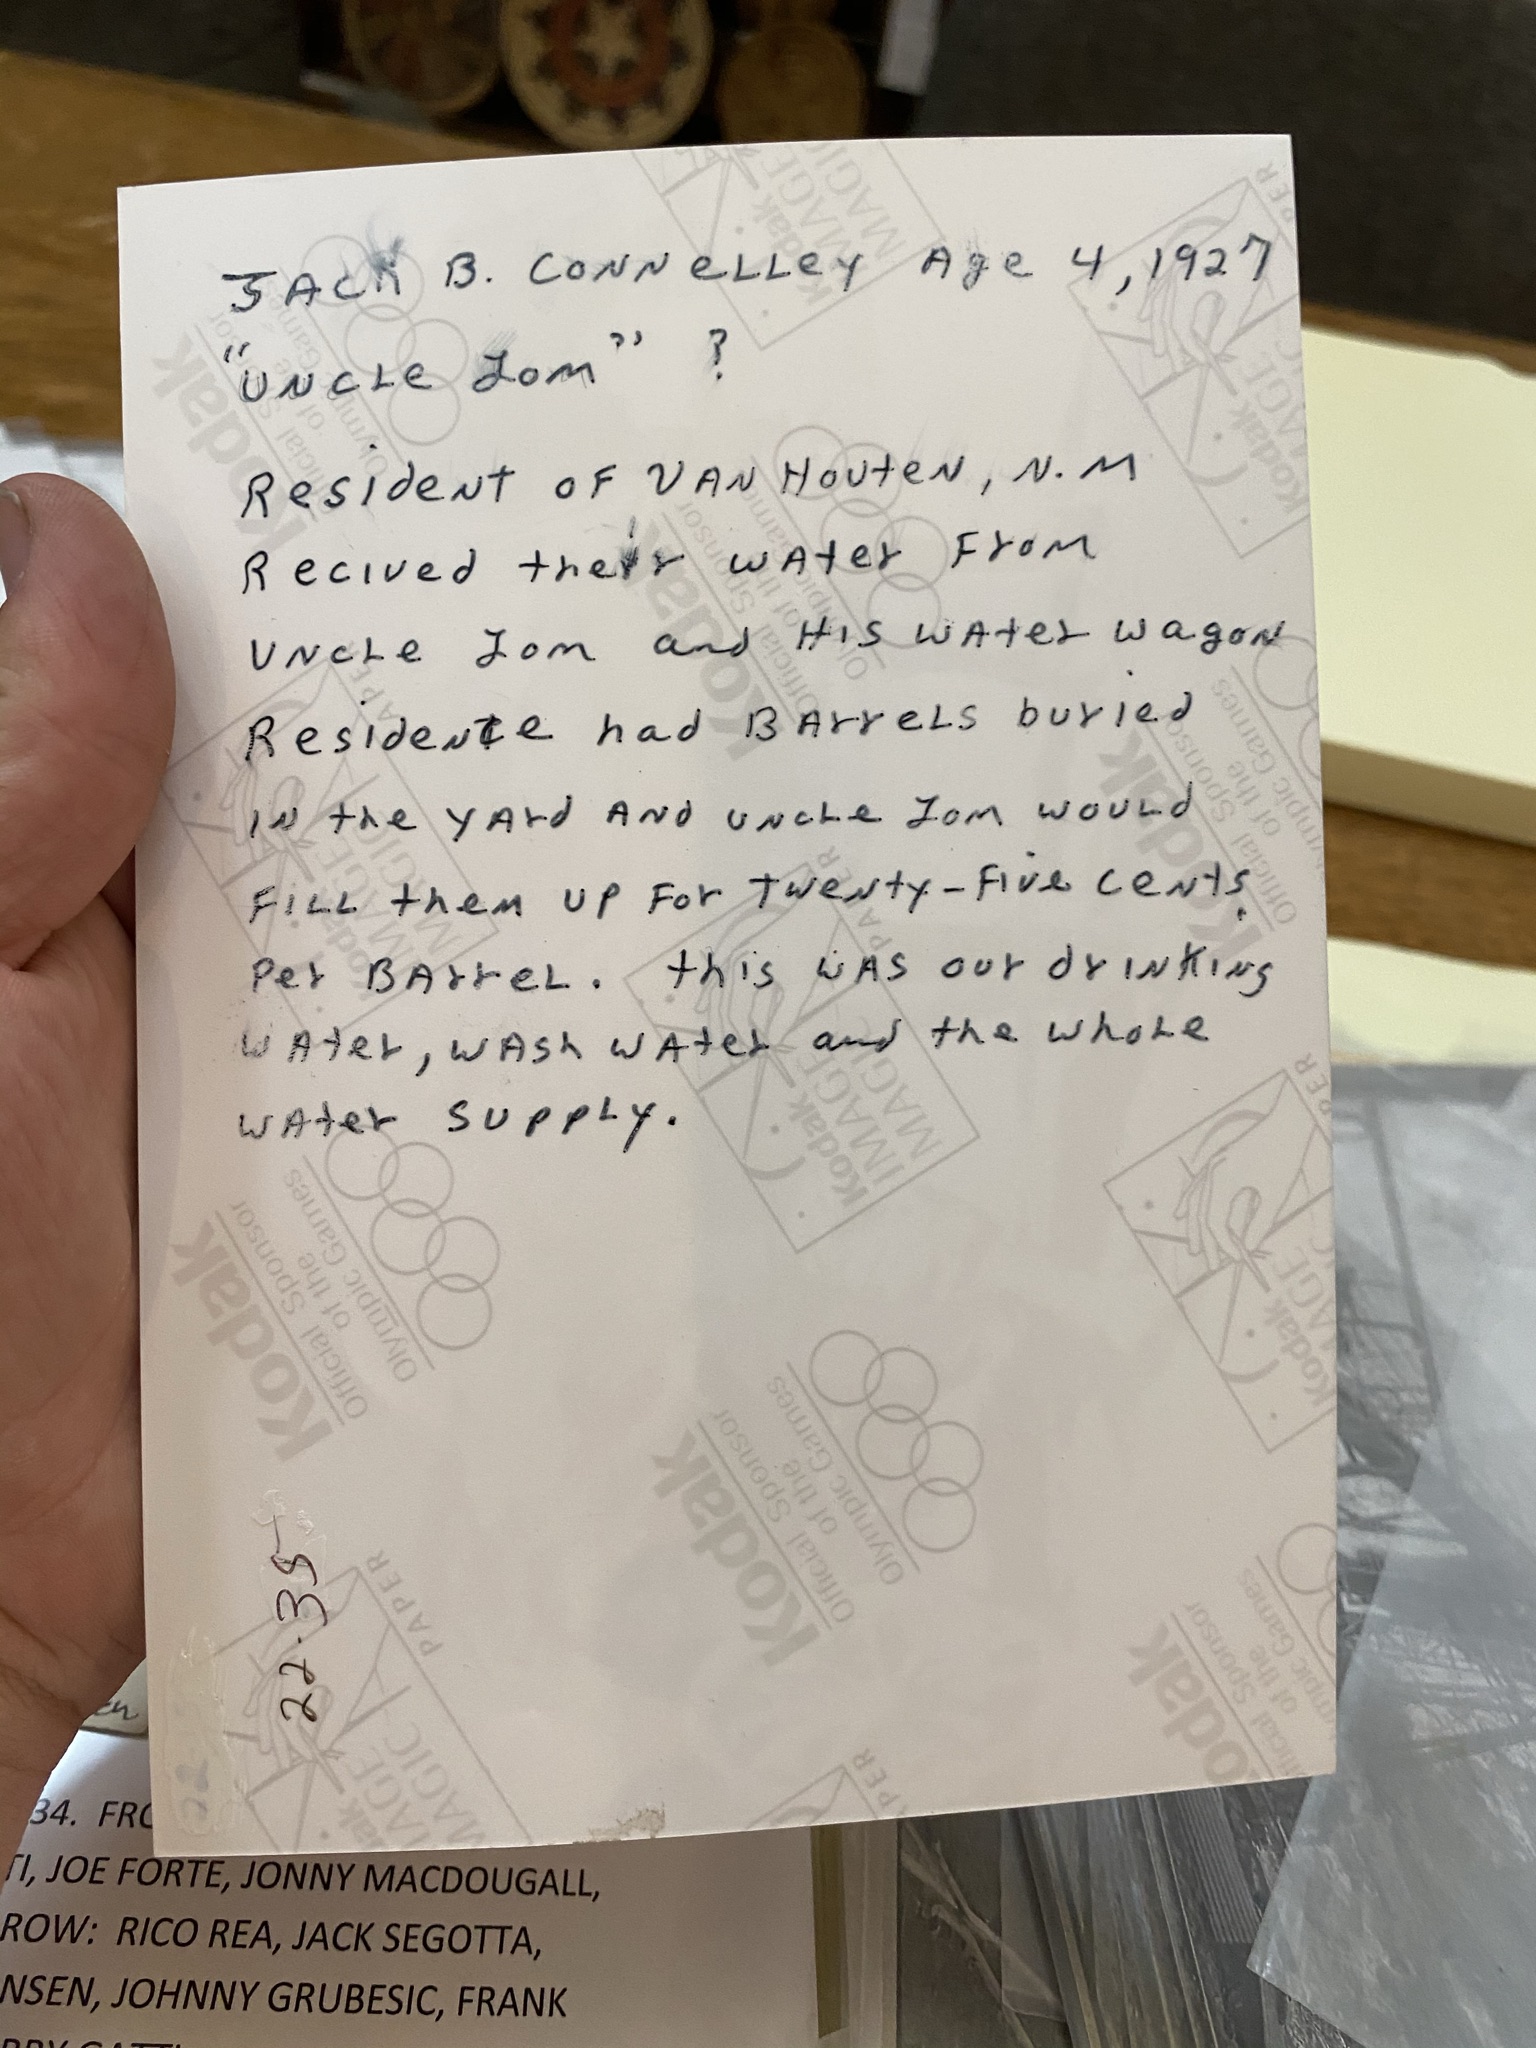 JACK B. CONNELLEY Age 4, 1927
"UNCLE Tom" ?
Resident OF VAN Houten, N.M
Recived their water From
UNCLE Tom and His water wagon
Residente had BArrels buried
IN the yard AND uncle Tom would
FILL them up For twenty-five cents
Per BArrel. this was our drinking
water, wash water and the whole
water supply.
22.35
Kodak
Official Sponsor
of the
Olympic Games
Kodak
IMAGE
MAGIC
PAPER
34. FRO
TI, JOE FORTE, JONNY MACDOUGALL,
ROW: RICO REA, JACK SEGOTTA,
NSEN, JOHNNY GRUBESIC, FRANK